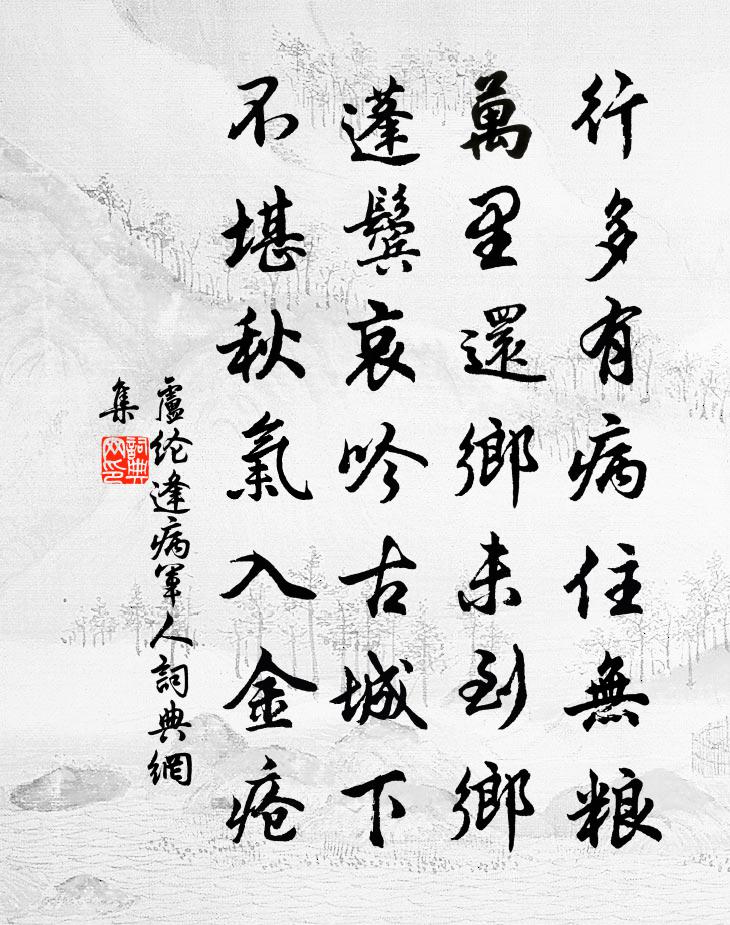 行多有病住無粮
萬里還鄉未到鄉
蓬鬢哀吟古城下
不堪秋氣入金疮
盧纶逢病軍人詞典網
集
詞典
网印